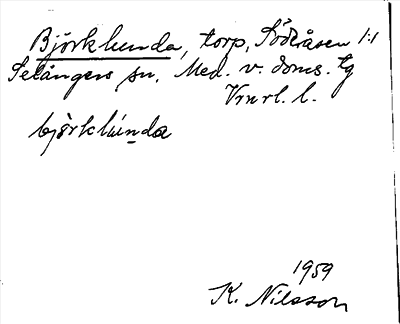 Björklunda, torp, Södråsen 1:1
Selångers sn, Med. v. doms. tg
Vnrl. l.
björklúnda
1959
K. Nilsson